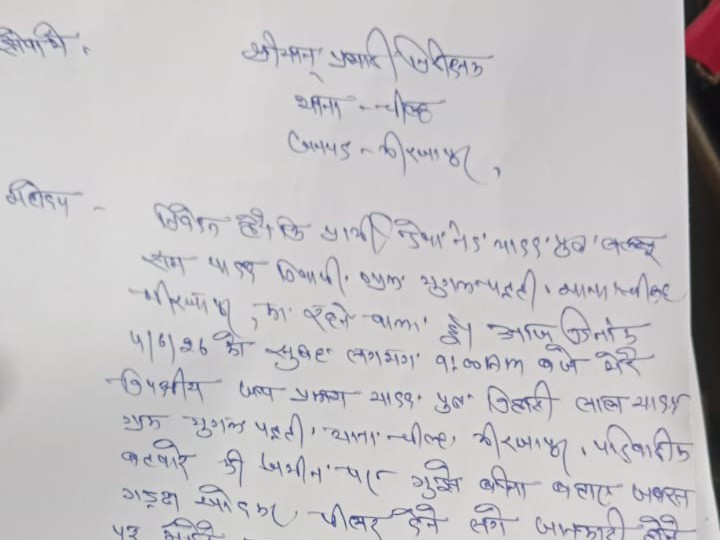 सेवा में,
श्रीमान् प्रभारी निरीक्षक
थाना - चील्ह
जनपद - मीरजापुर,
महोदय -
निवेदन है कि प्रार्थी यादव पुत्र
राम यादव निवासी ग्राम मुगलपट्टी, थाना चील्ह
मीरजापुर, का रहने वाला हूँ। आज दिनांक
5/6/26 को सुबह लगभग 9:00 AM बजे मेरे
विपक्षीय जय प्रकाश यादव पुत्र बिहारी लाल यादव
ग्राम मुगलपट्टी, थाना चील्ह, मीरजापुर, पारिवारिक
बटवारे की जमीन पर मुझे बिना बताए जबरन
गड्ढा खोदकर पीलर देने लगे जानकारी होने
पर